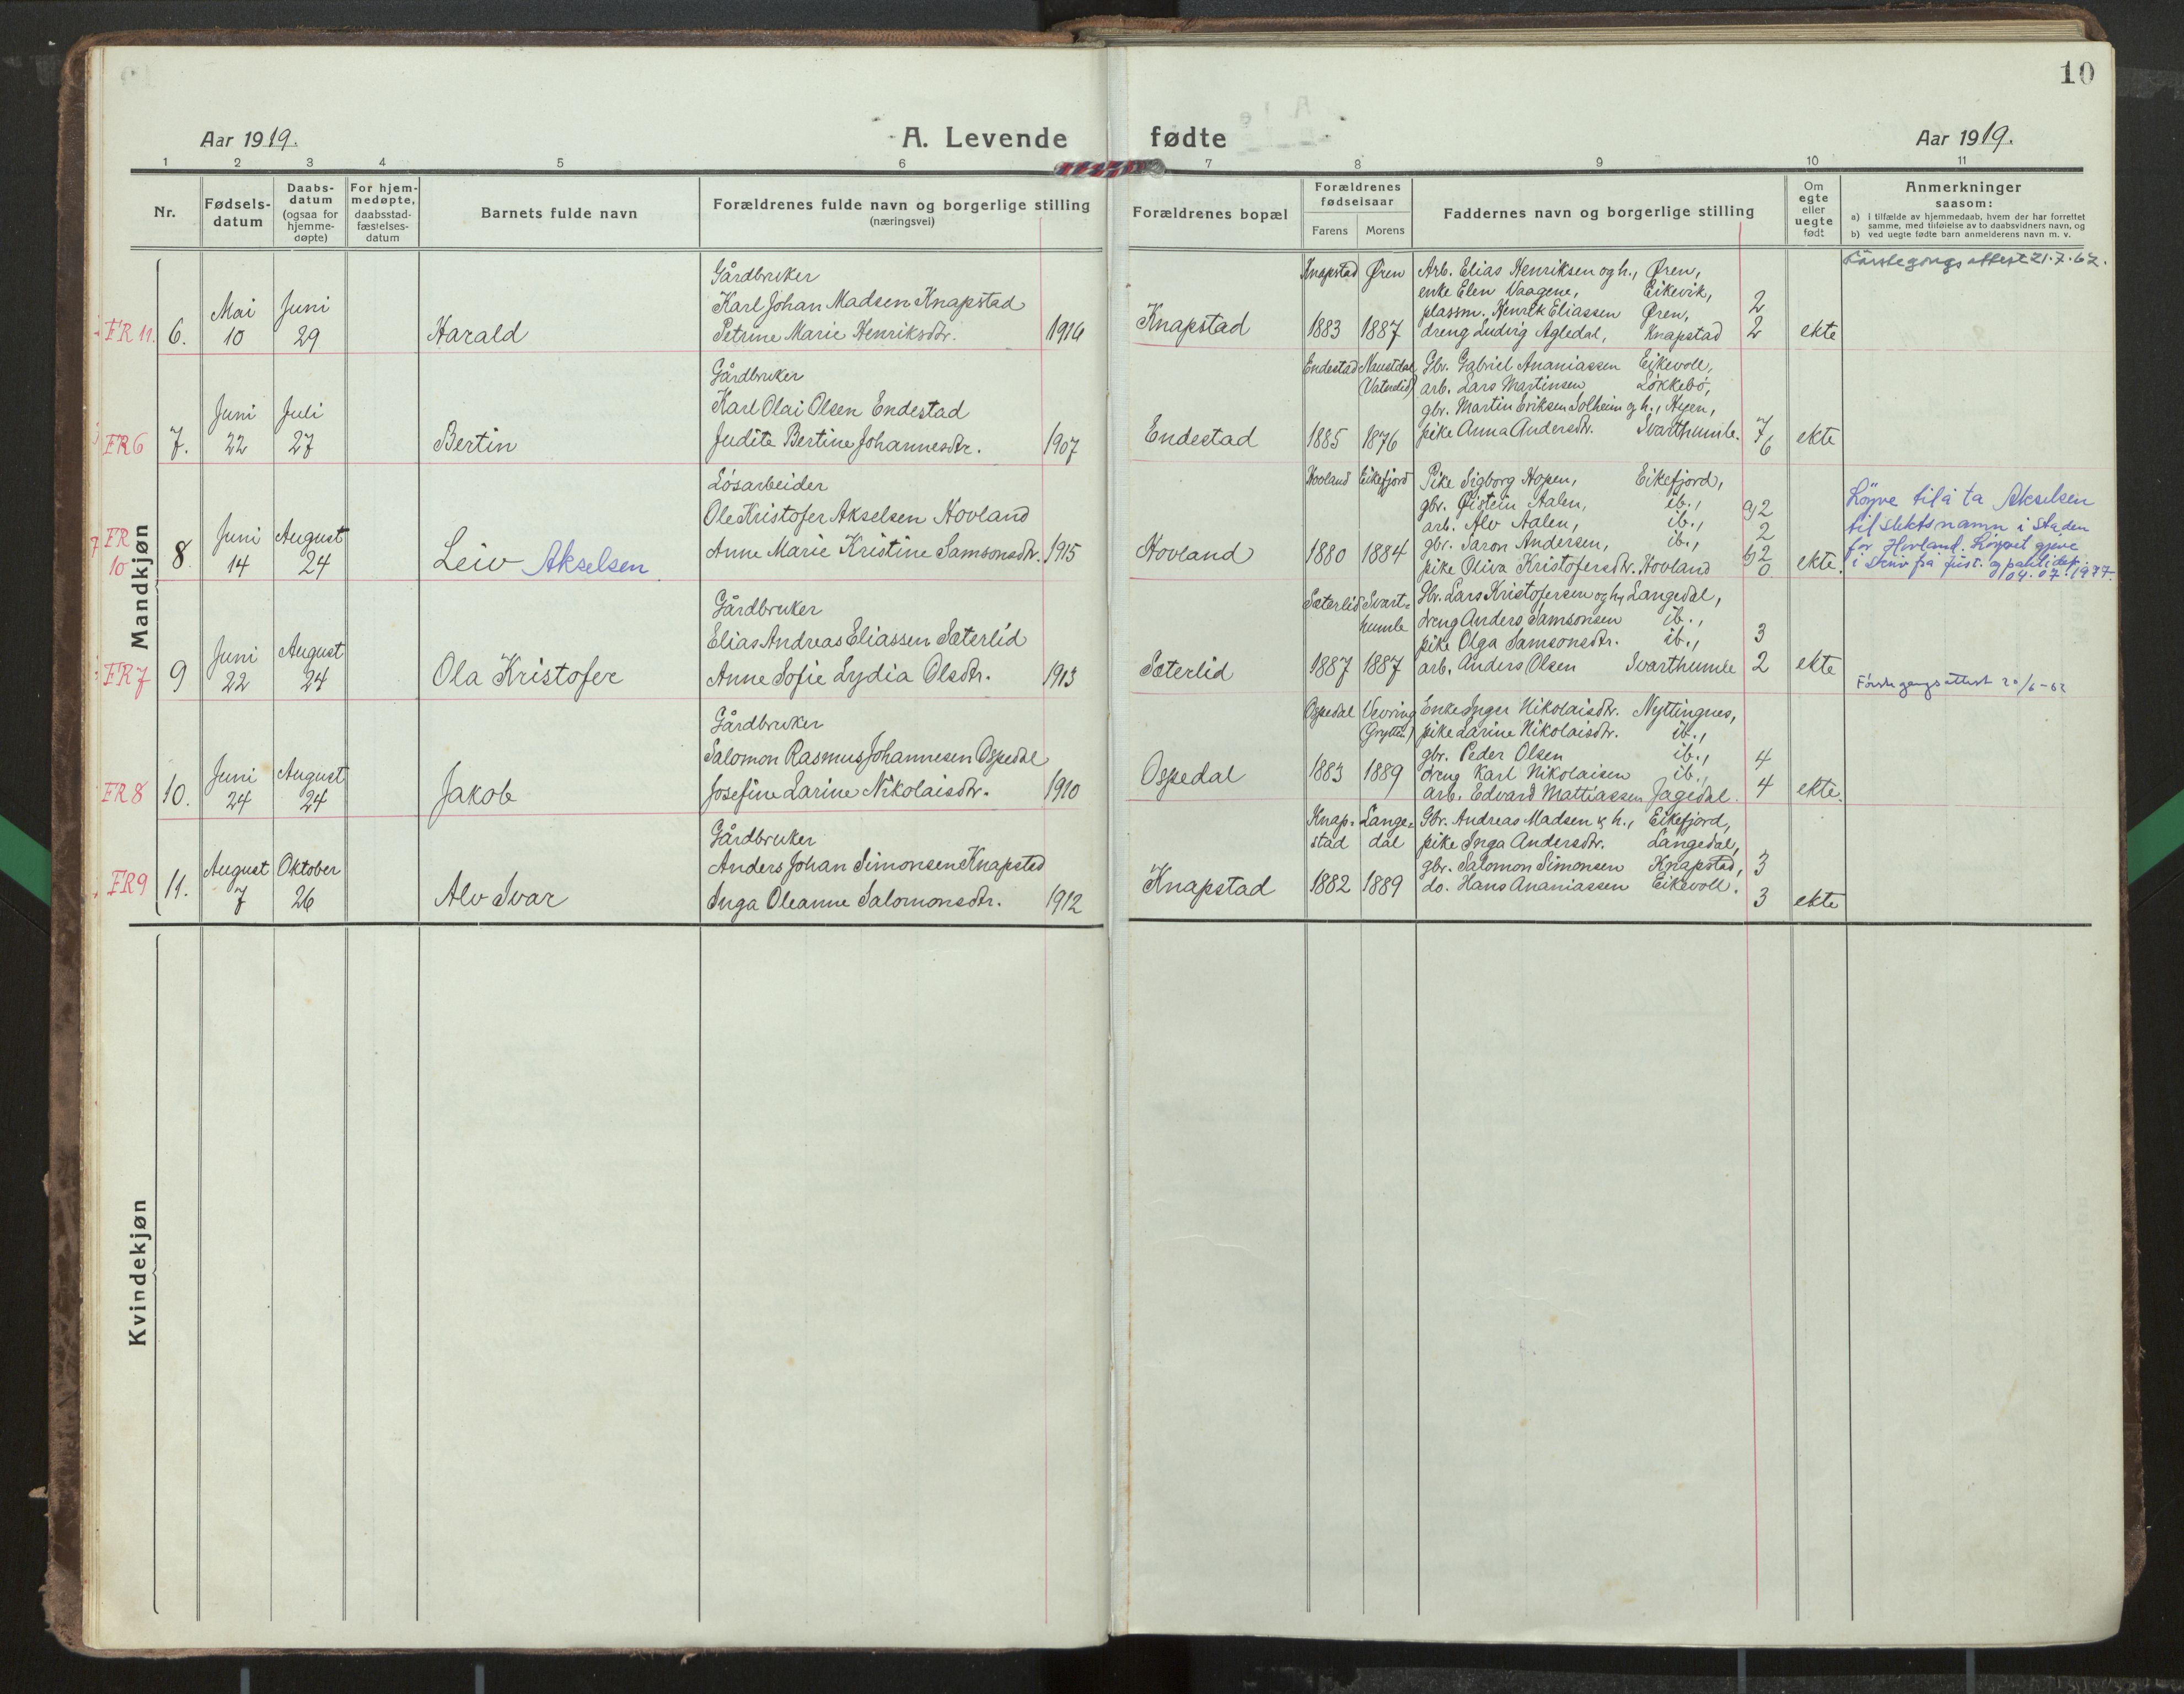 10
Aar 1919.
A. Levende fødte
Aar 1919.
1 2 3 4 5 6 7 8 9 10 11
Nr.
Fødsels-
datum
Daabs-
datum
(ogsaa for
hjemme-
døpte)
For hjem-
medøpte,
daabsstad-
fæstelses-
datum
Barnets fulde navn
Forældrenes fulde navn og borgerlige stilling
(næringsvei)
Forældrenes bopæl
Forældrenes
fødselsaar
Farens Morens
Faddernes navn og borgerlige stilling
Om
egte
eller
uegte
født
Anmerkninger
saasom:
a) i tilfælde av hjemmedaab, hvem der har forrettet
samme, med tilføielse av to daabsvidners navn, og
b) ved uegte fødte barn anmelderens navn m. v.
Mandkjøn
FR 11. 6.
Mai
10
Juni
29
Harald
Gårdbruker
Karl Johan Madsen Knapstad
Petrine Marie Henriksdtr. 1916
Knapstad
Knapstad Øren
1883 1887
Arb. Elias Henriksen og h., Øren,
enke Elen Vaagene, Eikevik,
plassm. Henrik Eliassen Øren,
dreng Ludvig Agledal, Knapstad
2
2
ekte
Förstegongs attest 21.7.62.
FR 6 7.
Juni
22
Juli
27
Bertin
Gårdbruker
Karl Olai Olsen Endestad
Judite Bertine Johannesdtr. 1907
Endestad
Endestad Naustdal
(Vatndid)
1885 1876
Gbr. Gabriel Ananiassen Eikevoll,
arb. Lars Martinsen Løkkebø,
gbr. Martin Eriksen Solheim og h., Hyen,
pike Anna Andersdtr. Svarthumle.
7
6
ekte
FR
10 8.
Juni
14
August
24
Leiv Akselsen
Løsarbeider
Ole Kristofer Akselsen Hovland
Anne Marie Kristine Samsonsdtr. 1915
Hovland
Hovland Eikefjord
1880 1884
Pike Sigborg Hopen, Eikefjord,
gbr. Øistein Aalen, ib.,
arb. Alv Aalen, ib.,
gbr. Saron Andersen, ib.,
pike Oliva Kristofersdtr. Hovland
g) 2
2
g) 2
0
ekte.
Løyve til å ta Akselsen
til slektsnamn i staden
for Hovland. Løyvet gjeve
i skriv frå just. og politidep.
04.07.1977.
FR 7 9
Juni
22
August
24
Ola Kristofer
Gårdbruker
Elias Andreas Eliassen Sæterlid
Anne Sofie Lydia Olsdtr. 1913
Sæterlid
Sæterlid Svart-
humle
1887 1887
Gbr. Lars Kristofersen og h., Langedal,
dreng Anders Samsonsen ib.,
pike Olga Samsonsdtr. ib.,
arb. Anders Olsen Svarthumle
3
2
ekte
Förstegangsattest 20/6-62
FR 8 10.
Juni
24
August
24
Jakob
Gårdbruker
Salomon Rasmus Johannesen Ospedal
Josefine Larine Nikolaisdtr. 1910
Ospedal
Ospedal Vevring
(Grytten)
1883 1889
Enke Inger Nikolaisdtr. Nyttingnes,
pike Larine Nikolaisdtr. ib.,
gbr. Peder Olsen ib.,
dreng Karl Nikolaisen ib.,
arb. Edvard Mattiassen Jagedal.
4
4
ekte.
FR 9 11.
August
7
Oktober
26
Alv Ivar
Gårdbruker
Anders Johan Simonsen Knapstad
Inga Oleanne Salomonsdtr. 1912
Knapstad
Knap-
stad
Lange-
dal
1882 1889
Gbr. Andreas Madsen & h., Eikefjord,
pike Inga Andersdtr. Langedal,
gbr. Salomon Simonsen Knapstad,
do. Hans Ananiassen Eikevoll.
3
3
ekte
Kvindekjøn